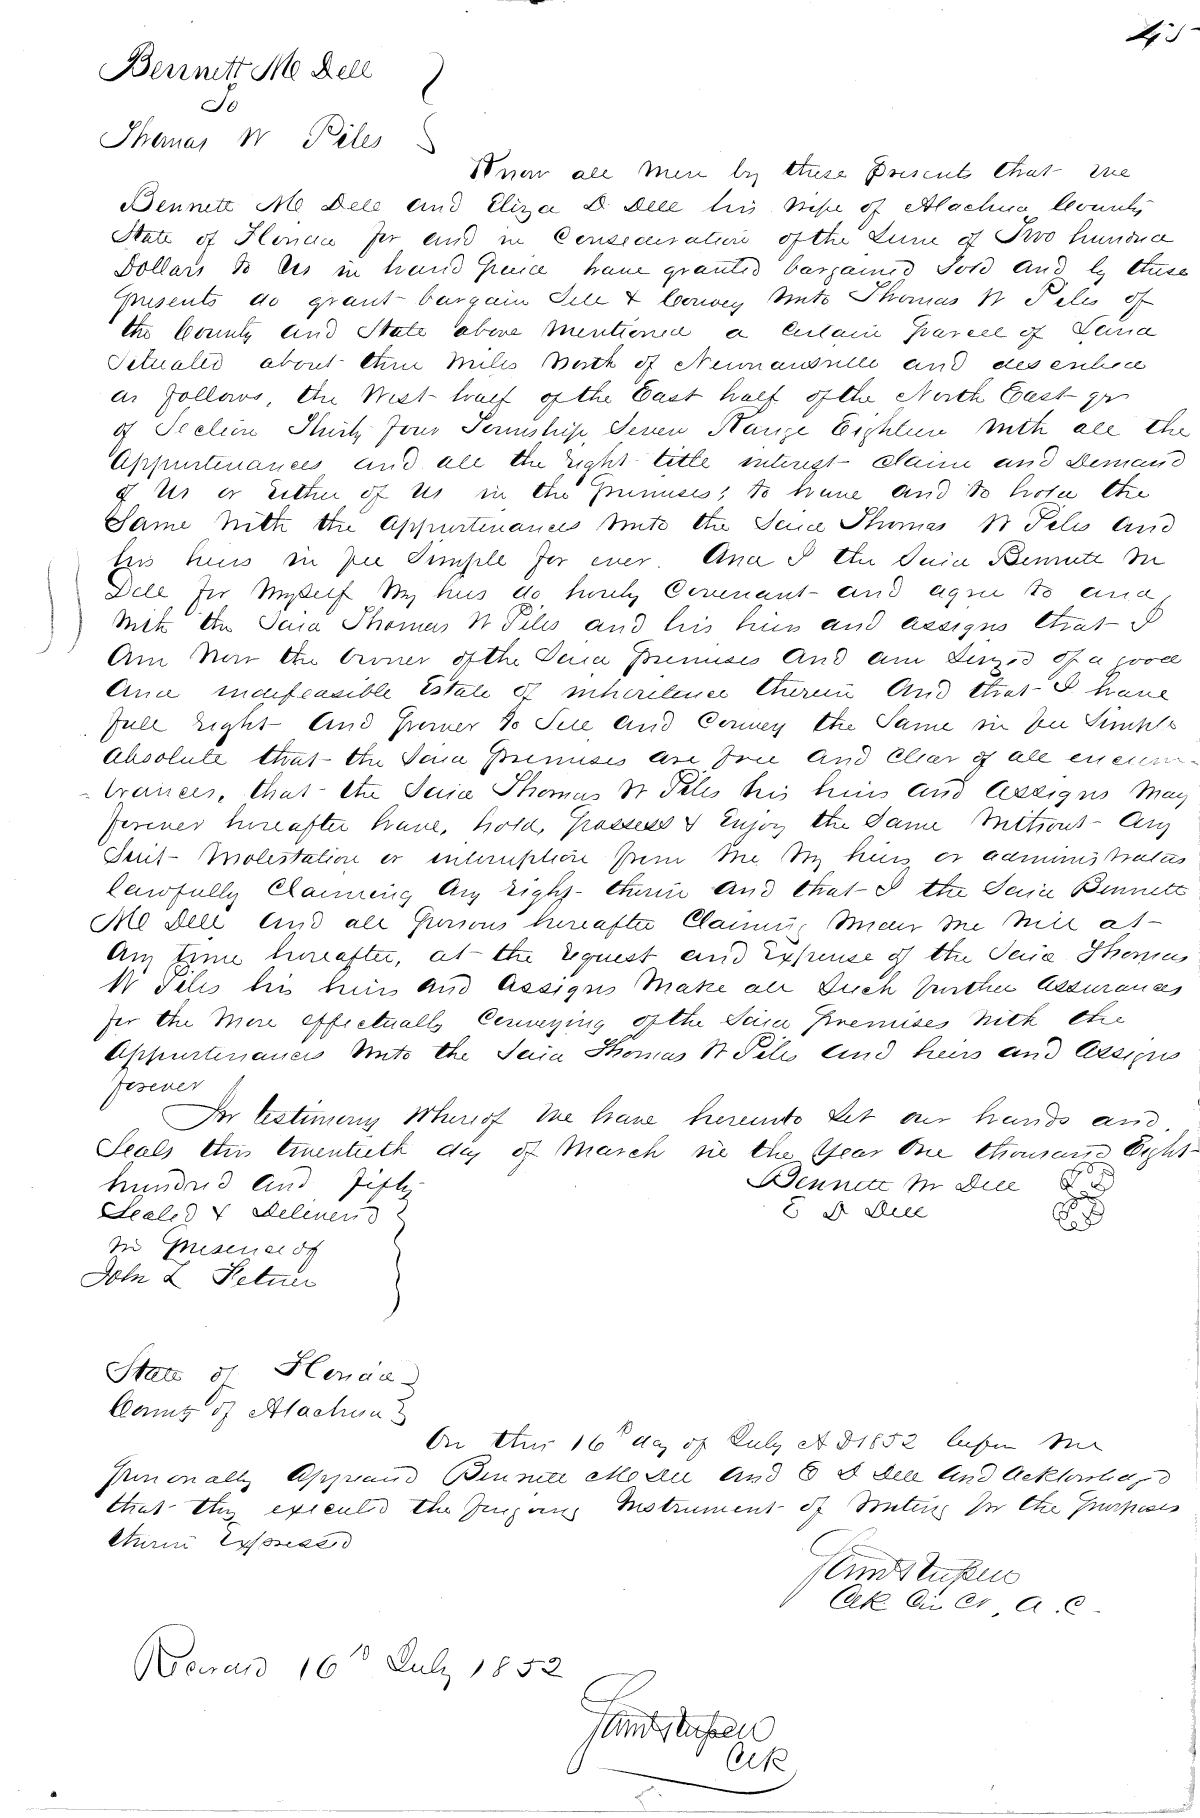 45
Bennett Mc Dell
To
Thomas W Piles
Know all Men by these Presents that we
Bennett Mc Dell and Eliza D Dell his wife of Alachua County
State of Florida for and in Consideration of the Sum of Two hundred
Dollars to Us in hand paid have granted bargained Sold and by these
presents do grant bargain Sell & Convey Unto Thomas W Piles of
the County and State above Mentioned a Certain parcel of Land
Situated about three Miles North of Newnansville and described
as follows, the West half of the East half of the North East qr
of Section Thirty four Township Seven Range Eighteen with all the
Appurtenances and all the right title interest claim and Demand
of Us or Either of Us in the premises; to have and to hold the
Same with the appurtenances Unto the Said Thomas W Piles and
his heirs in fee Simple for ever. And I the Said Bennett M
Dell for Myself My heirs do hereby Covenant and agree to and
with the Said Thomas W Piles and his heirs and assigns that I
Am Now the owner of the Said premises and am Siezed of a good
And indefeasible Estate of inheritence therein And that I have
full right and power to Sell and Convey the Same in fee Simple
Absolute that the Said premises are free and Clear of all encum-
-brances, that the Said Thomas W Piles his heirs and Assigns May
forever hereafter have, hold, possess & Enjoy the Same without any
Suit Molestation or interruption from Me My heirs or administrators
lawfully Claiming Any right therein and that I the Said Bennett
Mc Dell and all persons hereafter Claiming Under Me will at
Any time hereafter, at the request and Expense of the Said Thomas
W Piles his heirs and Assigns Make all Such further assurances
for the More effectually Conveying of the Said premises with the
Appurtenances Unto the Said Thomas W Piles and heirs and Assigns
forever
In testimony Whereof We have hereunto Set our hands and
Seals this twentieth day of March in the Year One thousand Eight
hundred and fifty Bennett M Dell
Sealed & Delivered E D Dell
in presence of
John L
State of Florida
County of Alachua
On this 16th day of July A D 1852 before Me
personally Appeared Bennett Mc Dell and E D Dell and Acknowledged
that they executed the foregoing Instrument of writing for the purposes
therein Expressed
Clk Cir Ct, A. C.
Record 16th July 1852
Clk